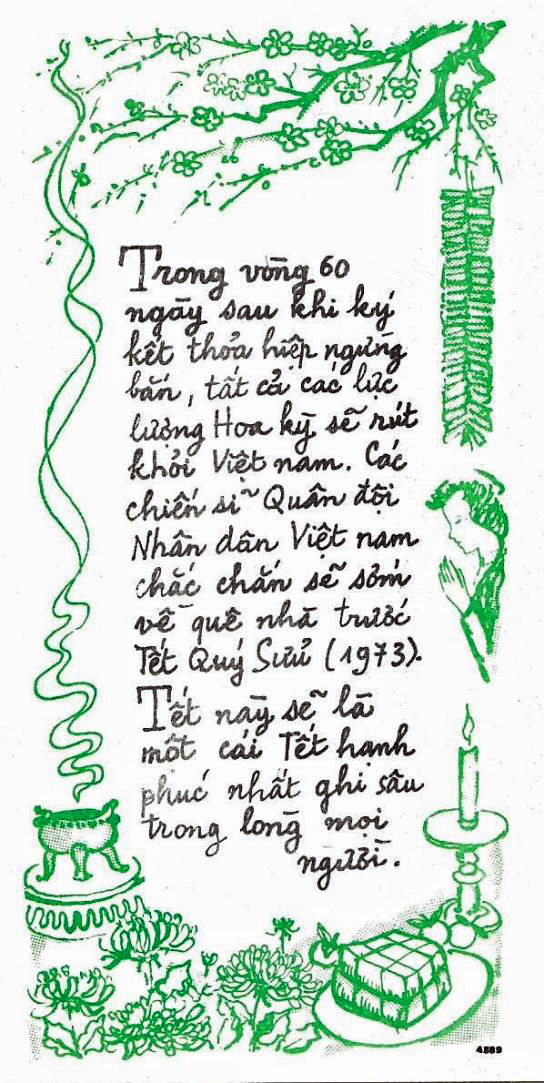 Trong vòng 60
ngày sau khi ký
kết thỏa hiệp ngưng
bắn, tất cả các lực
lượng Hoa kỳ sẽ rút
khỏi Việt nam. Các
chiến sĩ Quân đội
Nhân dân Việt nam
chắc chắn sẽ sớm
về quê nhà trước
Tết Quý Sửu (1973).
Tết này sẽ là
một cái Tết hạnh
phúc nhất ghi sâu
trong lòng mọi
người.
4589